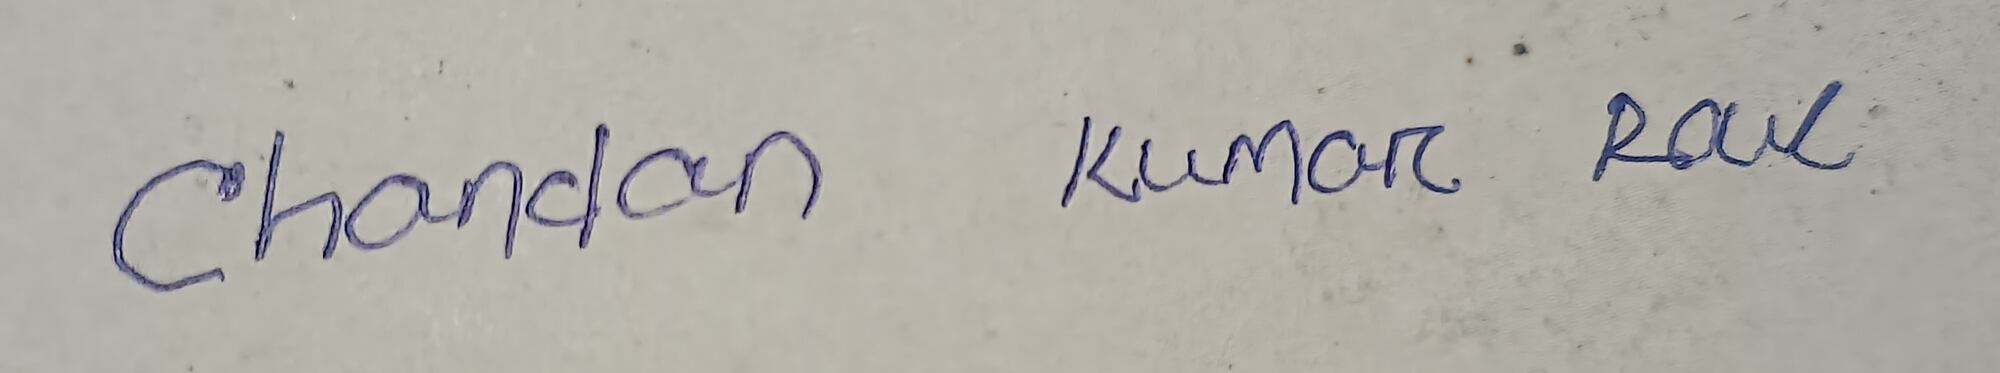 Chandan Kumar Raul